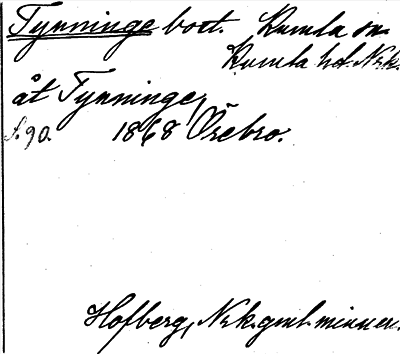 Tynninge bost. Kumla sn.
Kumla hd. Nrk.
åt Tynninge,
S. 90. 1868 Örebro.
Hofberg, Nrk. gml. minnen.